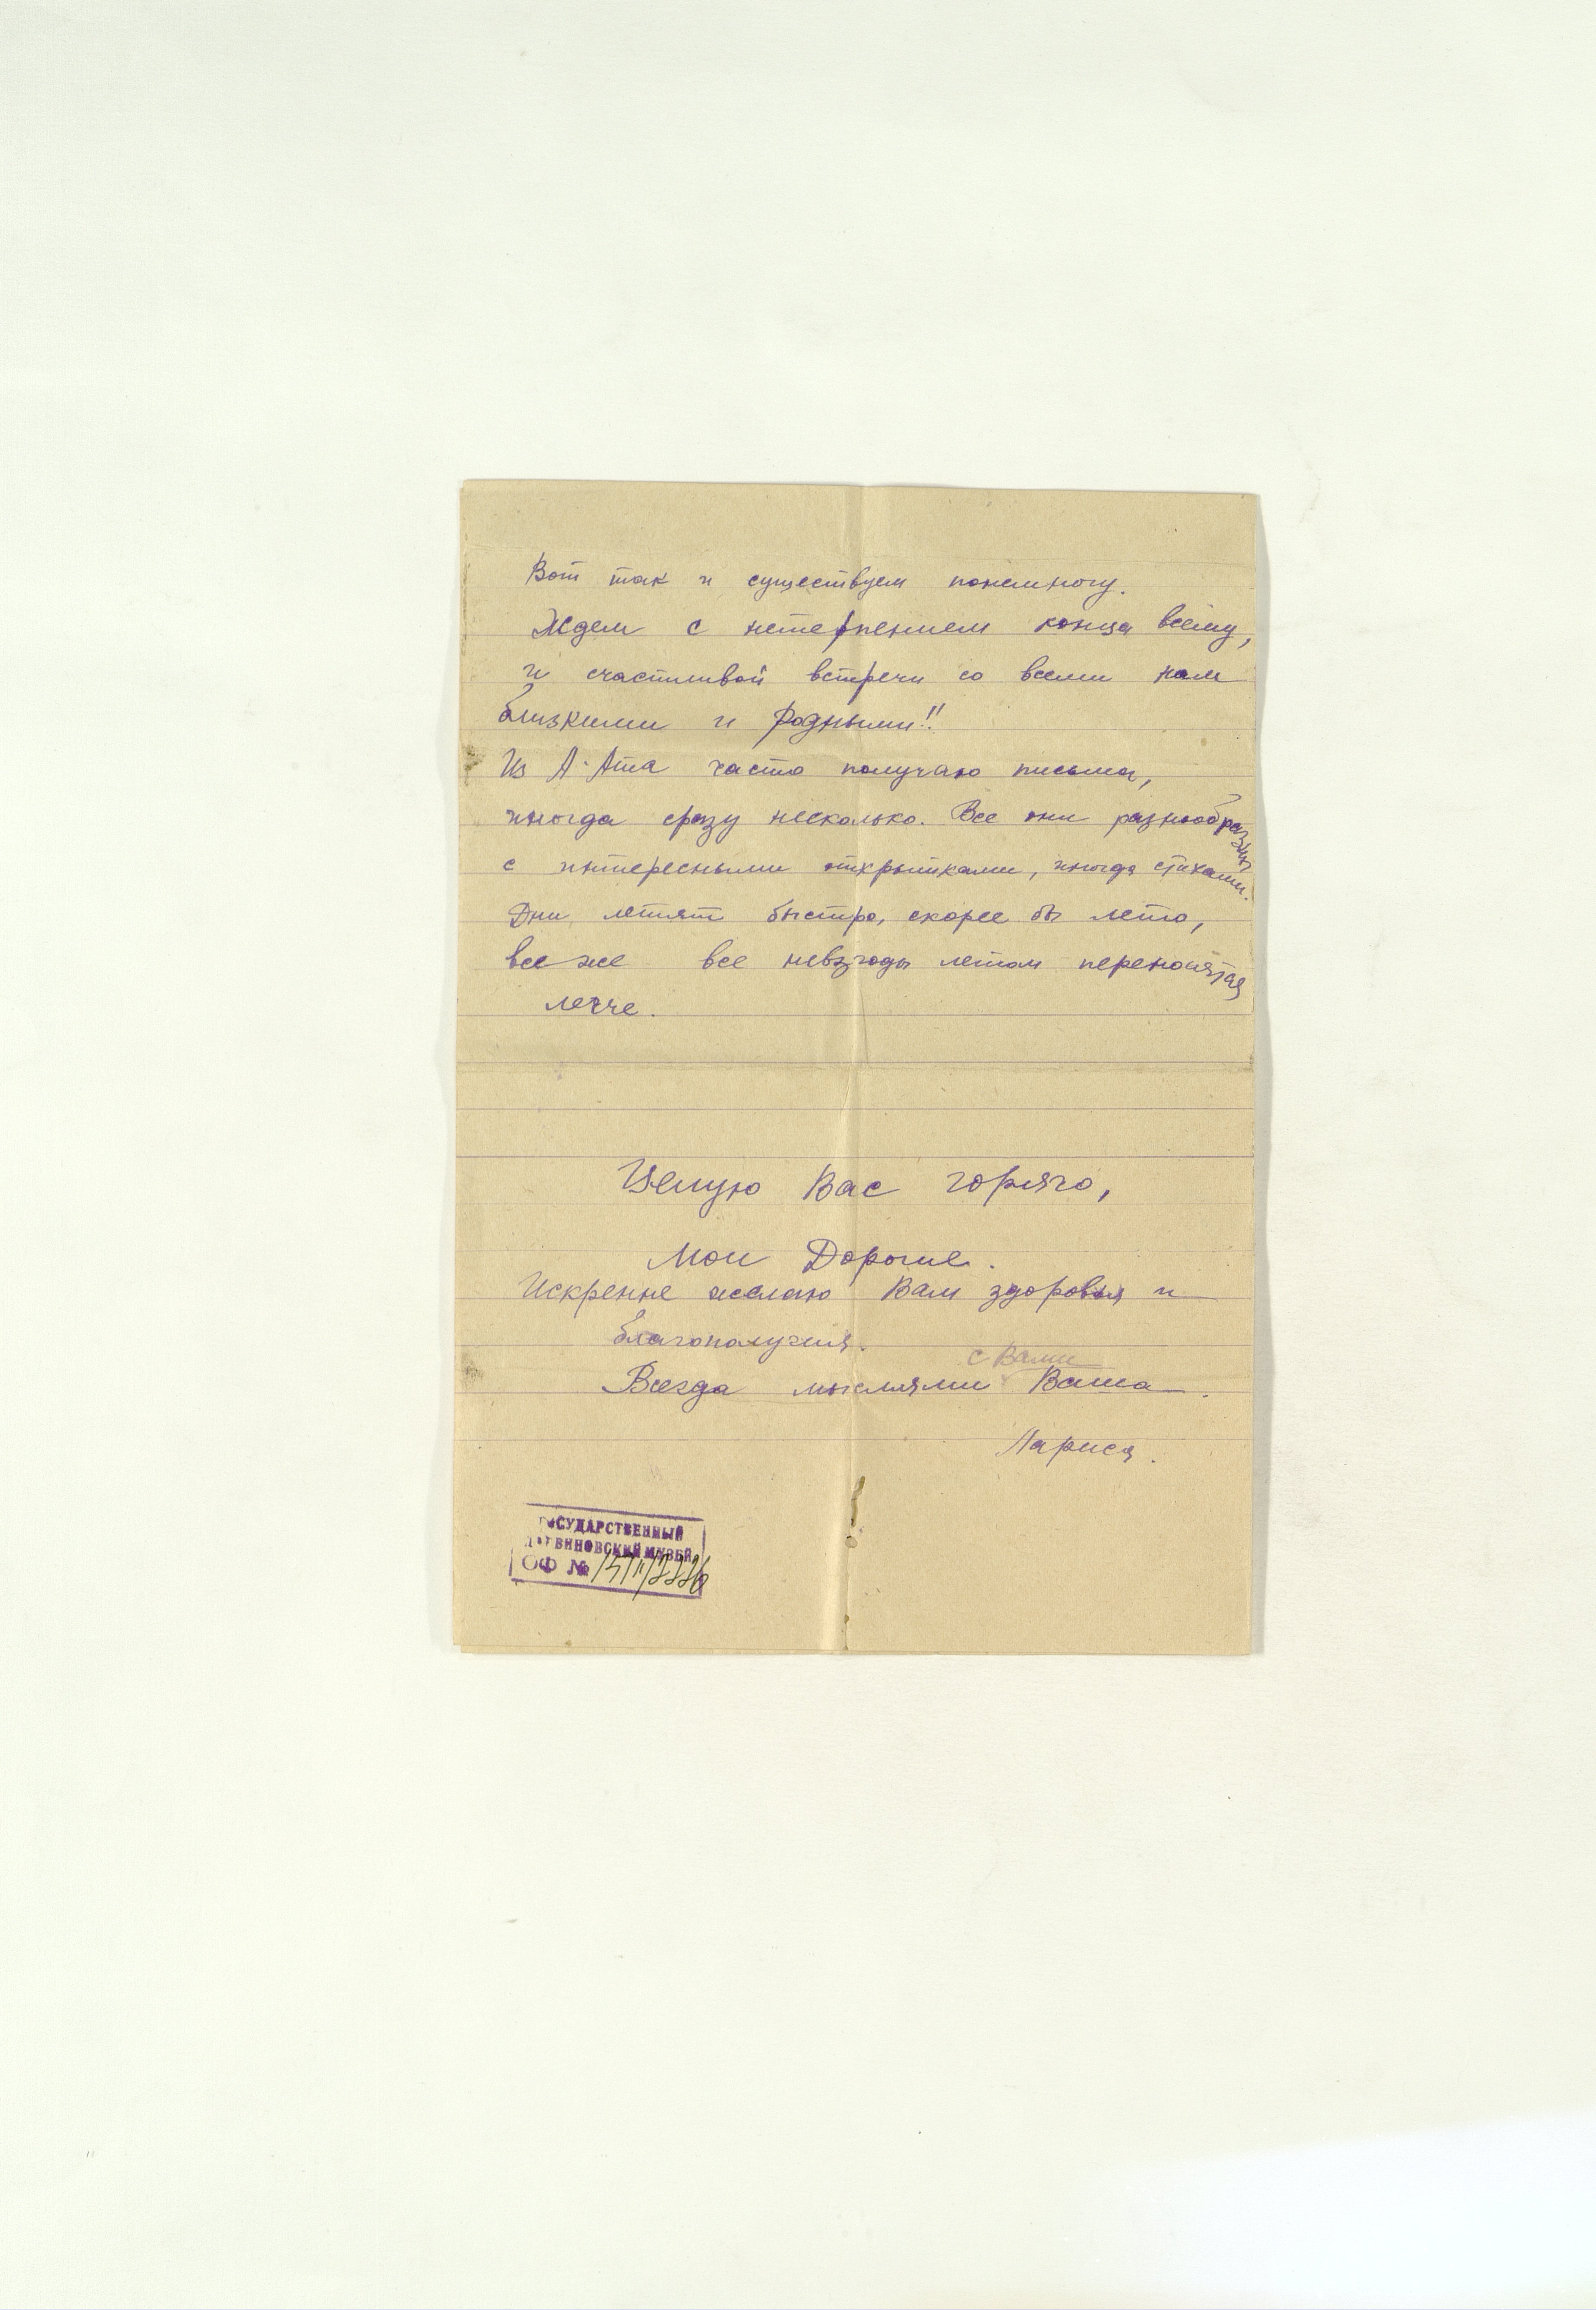 Вот так и существуем понемногу.
Ждем с нетерпением конца всему,
и счастливой встречи со всеми нам
близкими и родными!!
Из А-Ата часто получаю письма,
иногда сразу несколько. Все они разнообразны
с интересными открытками, иногда стихами.
Дни летят быстро, скорее бы лето,
все же все невзгоды летом переносятся
легче.
Целую Вас горячо,
Мои Дорогие.
Искренне желаю Вам здоровья и
благополучия.
с Вами
Всегда мыслями Ваша.
Лариса.
ГОСУДАРСТВЕННЫЙ
ДАРВИНОВСКИЙ МУЗЕЙ
ОФ №